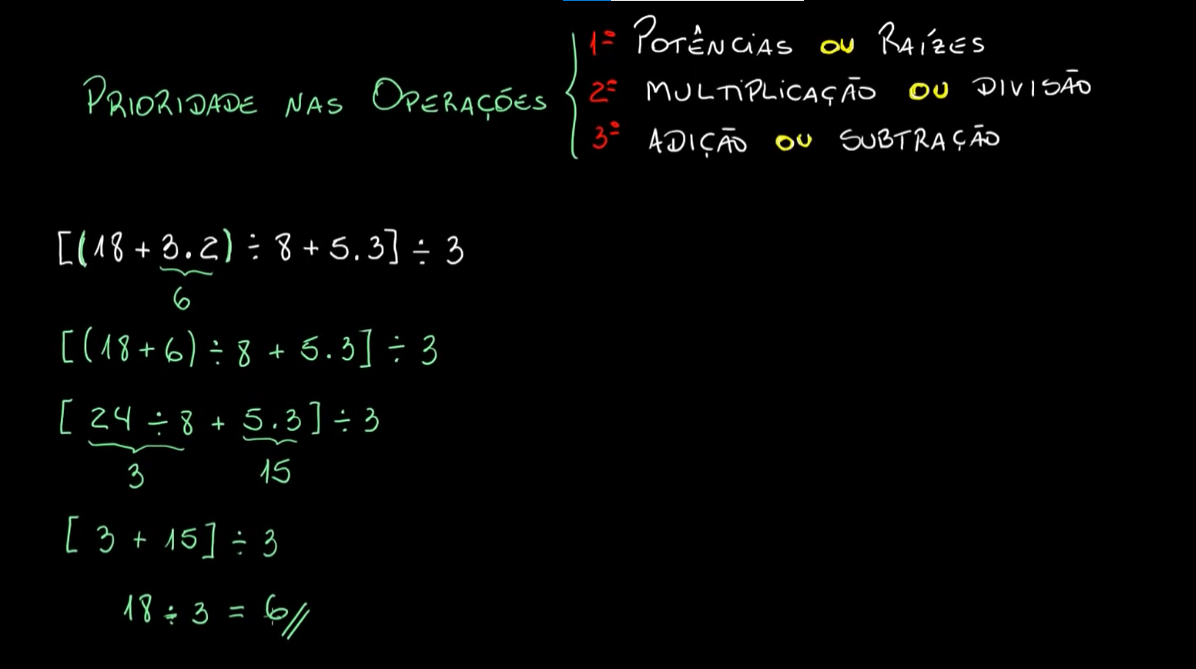 PRIORIDADE NAS OPERAÇÕES
1º POTÊNCIAS OU RAÍZES
2º MULTIPLICAÇÃO OU DIVISÃO
3º ADIÇÃO OU SUBTRAÇÃO
[(18 + 3.2) ÷ 8 + 5.3] ÷ 3
6
[(18+6) ÷ 8 + 5.3] ÷ 3
[ 24 ÷ 8 + 5.3 ] ÷ 3
3 15
[ 3 + 15] ÷ 3
18 ÷ 3 = 6//